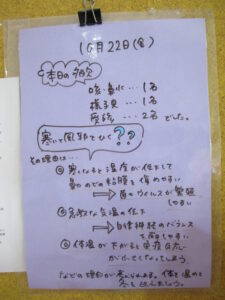 10月22日(金)
本日の欠
咳・鼻水… 1名
様子見 … 1名
… 2名 でした。
寒いと風邪をひく??
その理由は…
寒くなると湿度が低下して
鼻やのどの粘膜を傷めやすい
→ 菌やウイルスが繁殖
しやすい
急激な気温の低下
→ 自律神経のバランス
を崩しやすい
体温が下がると免疫
しまう
などの理由が考えられます。体を温め
冬を
ましょう。